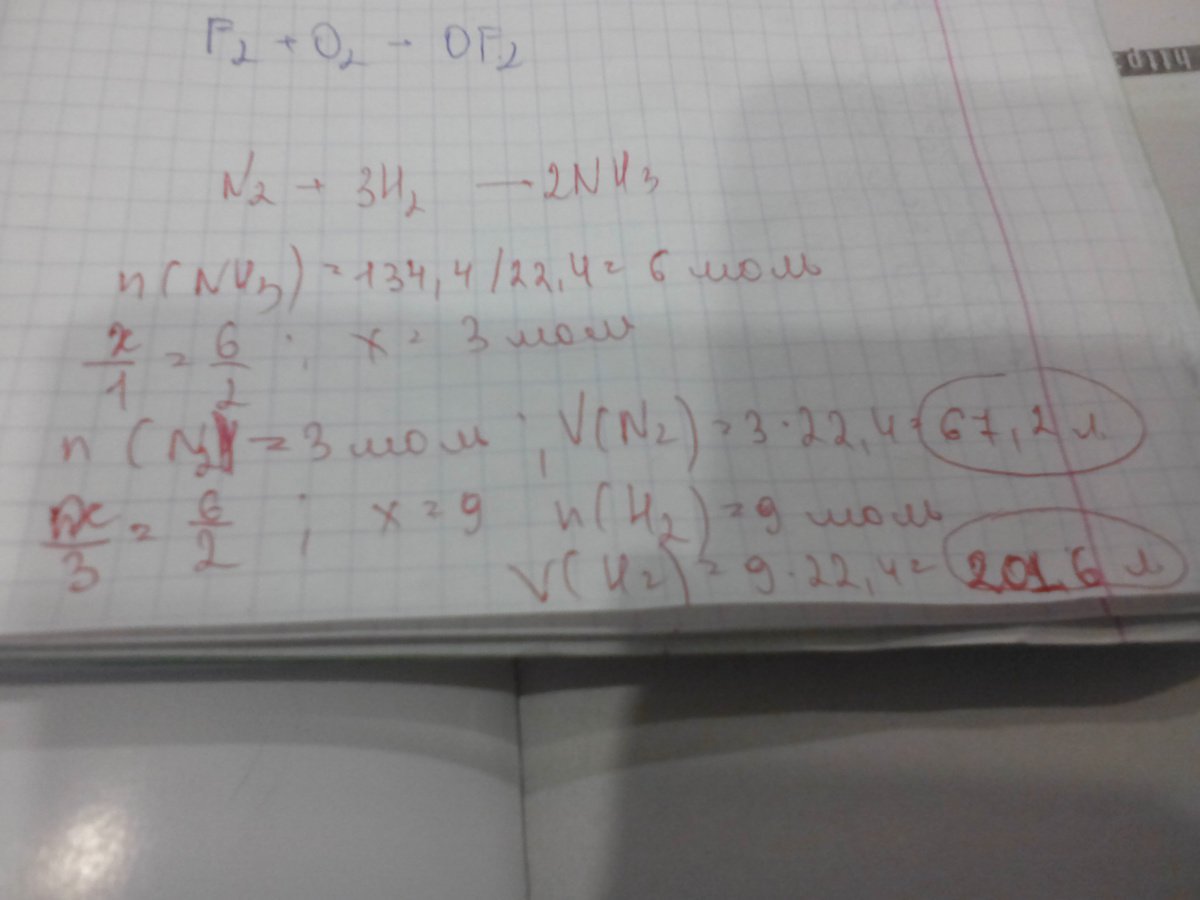 F₂ + O₂ → OF₂
http:
N₂ + 3H₂ — 2NH₃
n(NH₃) = 134,4/22,4 = 6 моль
x/1 = 6/2 ; x = 3 моль
n(N₂) = 3 моль ; V(N₂) = 3·22,4 = 67,2 л
x/3 = 6/2 ; x = 9 n(H₂) = 9 моль
V(H₂) = 9·22,4 = 201,6 л